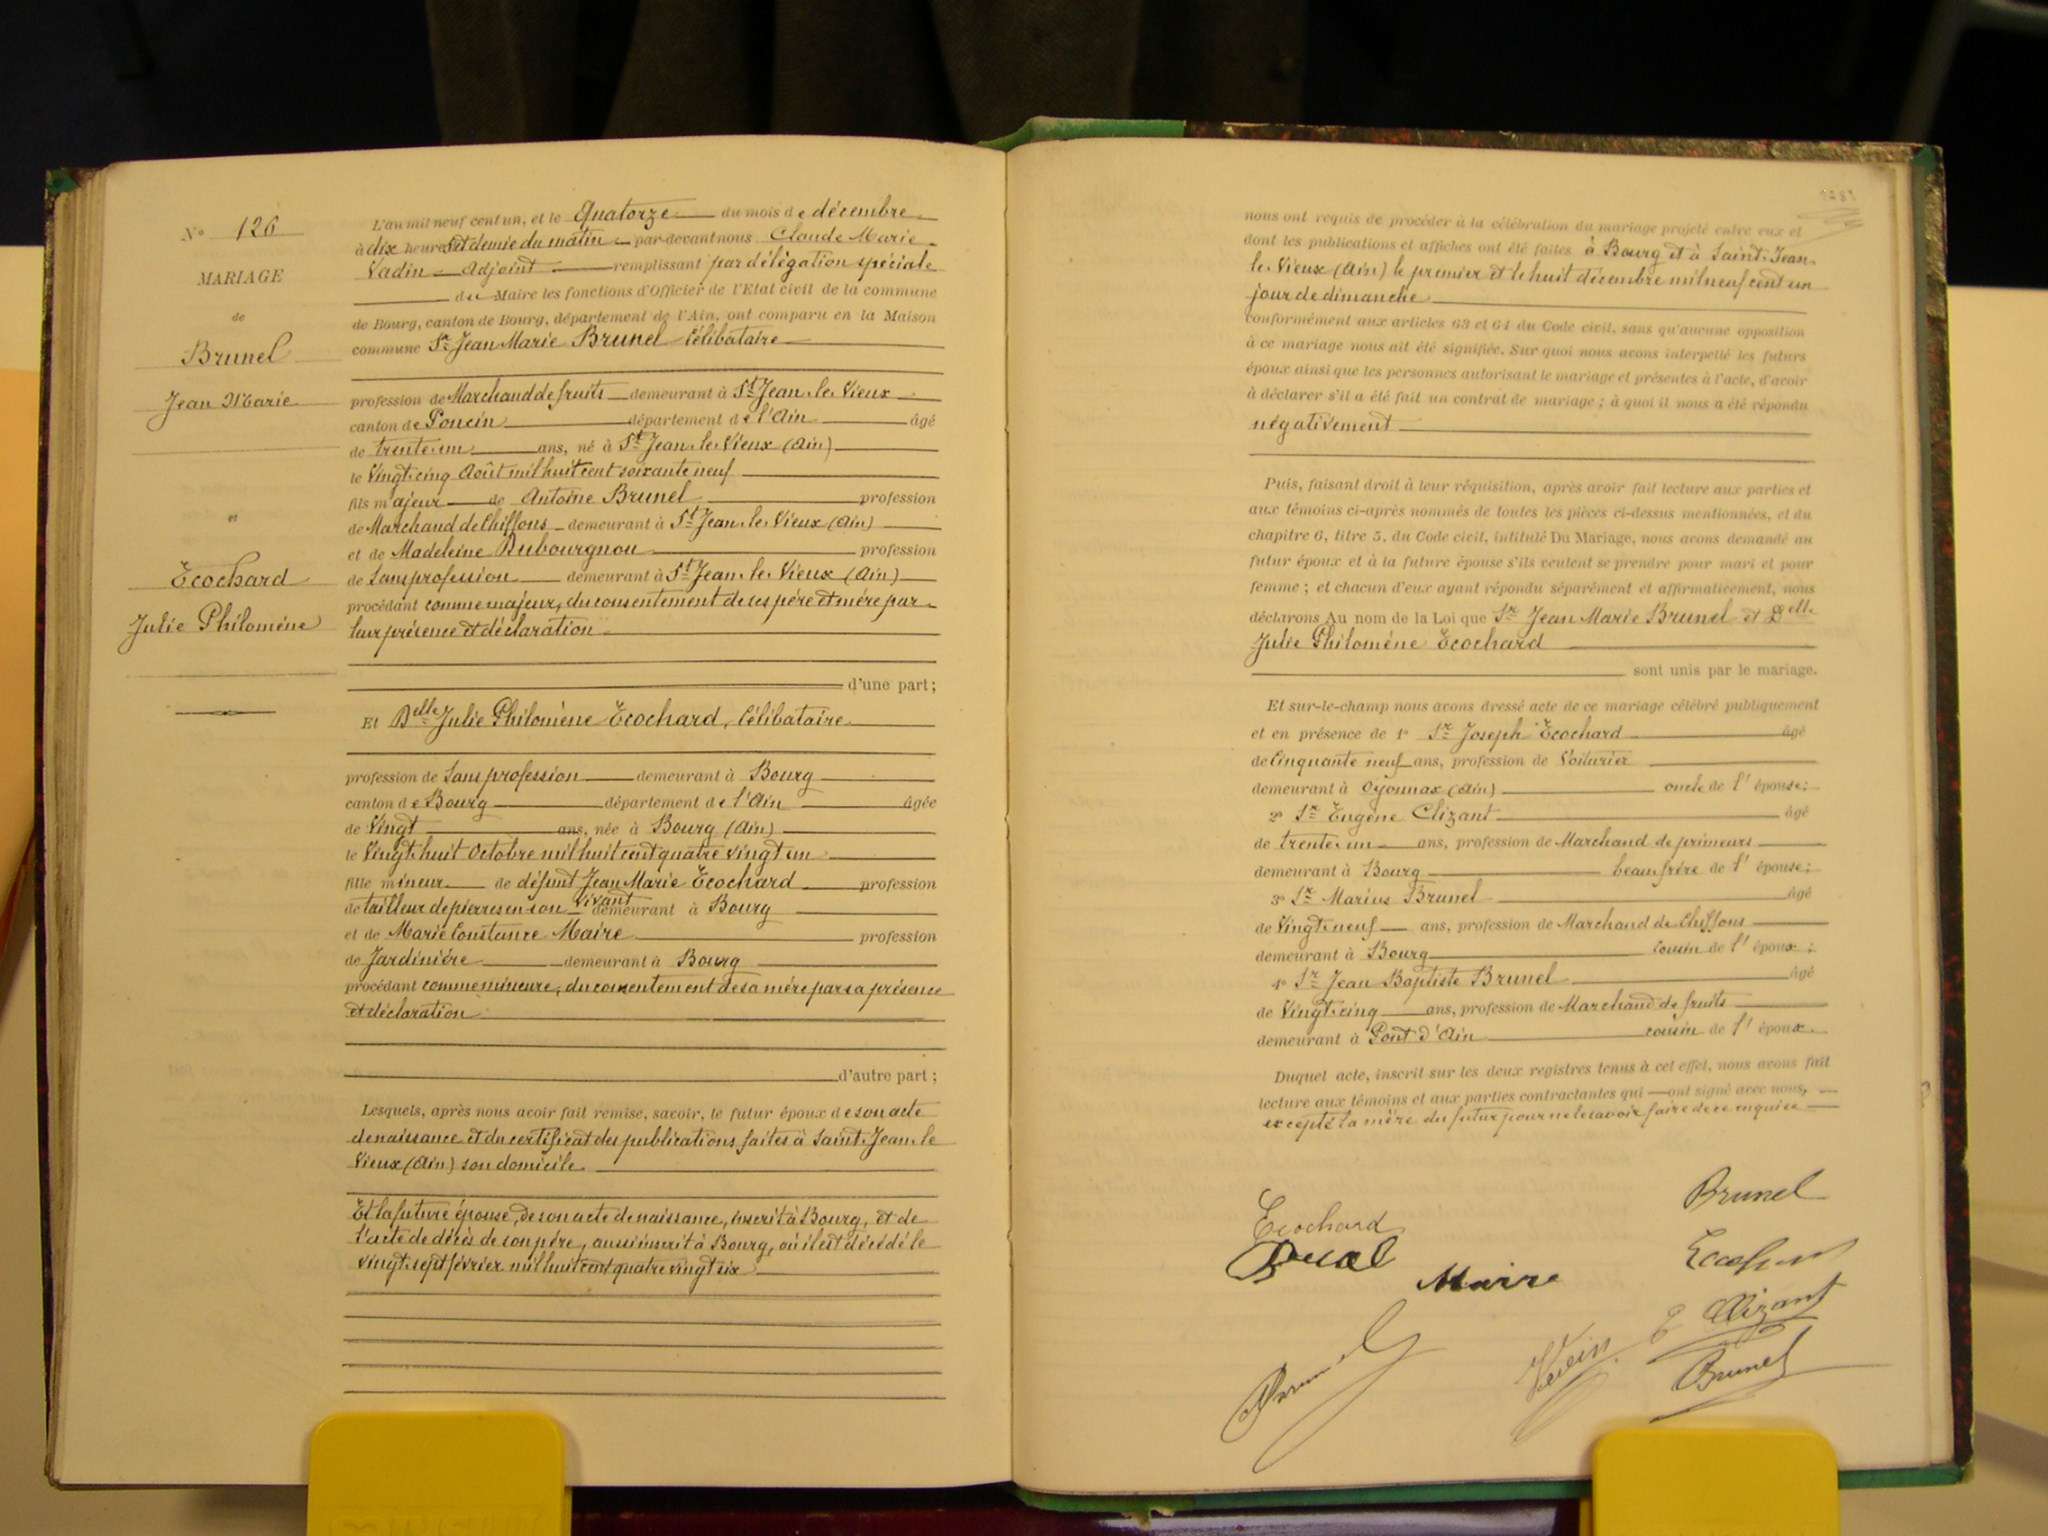 N° 126
MARIAGE
de
Brunel
Jean Marie
et
Ecochard
Julie Philomène
L'an mil neuf cent un, et le Quatorze du mois de décembre
à dix heures et demie du matin par-devant nous Claude Marie
Vadin Adjoint remplissant par délégation spéciale
du Maire les fonctions d'Officier de l'Etat civil de la commune
de Bourg, canton de Bourg, département de l'Ain, ont comparu en la Maison
commune Sr Jean Marie Brunel Célibataire
profession de Marchand de fruits demeurant à St Jean-le-Vieux
canton de Poncin département de l'Ain âgé
de trente-un ans, né à St Jean-le-Vieux (Ain)
le Vingt-cinq Août mil huit cent soixante neuf
fils majeur de Antoine Brunel profession
de Marchand de Chiffons demeurant à St Jean-le-Vieux (Ain)
et de Madeleine Dubourgnou profession
de Sans profession demeurant à St Jean-le-Vieux (Ain)
procédant comme majeur, du consentement de ses père et mère par
leur présence et déclaration
d'une part ;
Et Delle Julie Philomène Ecochard, Célibataire
profession de Sans profession demeurant à Bourg
canton de Bourg département de l'Ain âgée
de Vingt ans, née à Bourg (Ain)
le Vingt-huit Octobre mil huit cent quatre vingt un
fille mineur de défunt Jean Marie Ecochard profession
de tailleur de pierres en son vivant demeurant à Bourg
et de Marie Constance Maire profession
de Jardinière demeurant à Bourg
procédant comme mineure, du consentement de sa mère par sa présence
et déclaration
d'autre part ;
Lesquels, après nous avoir fait remise, savoir, le futur époux de son acte
de naissance et du certificat des publications faites à Saint-Jean-le
Vieux (Ain) son domicile
Et la future épouse, de son acte de naissance, inscrit à Bourg, et de
l'acte de décès de son père, aussi inscrit à Bourg, où il est décédé le
vingt-sept février mil huit cent quatre vingt six
nous ont requis de procéder à la célébration du mariage projeté entre eux et
dont les publications et affiches ont été faites à Bourg et à Saint-Jean-
le-Vieux (Ain) le premier et le huit décembre mil neuf cent un
jour de dimanche
conformément aux articles 63 et 64 du Code civil, sans qu'aucune opposition
à ce mariage nous ait été signifiée. Sur quoi nous avons interpellé les futurs
époux ainsi que les personnes autorisant le mariage et présentes à l'acte, d'avoir
à déclarer s'il a été fait un contrat de mariage ; à quoi il nous a été répondu
négativement
Puis, faisant droit à leur réquisition, après avoir fait lecture aux parties et
aux témoins ci-après nommés de toutes les pièces ci-dessus mentionnées, et du
chapitre 6, titre 5, du Code civil, intitulé Du Mariage, nous avons demandé au
futur époux et à la future épouse s'ils veulent se prendre pour mari et pour
femme ; et chacun d'eux ayant répondu séparément et affirmativement, nous
déclarons Au nom de la Loi que Sr Jean Marie Brunel et Delle
Julie Philomène Ecochard
sont unis par le mariage.
Et sur-le-champ nous avons dressé acte de ce mariage célébré publiquement
et en présence de 1° Sr Joseph Ecochard âgé
de Cinquante neuf ans, profession de Voiturier
demeurant à Oyonnax (Ain) oncle de l'épouse ;
2° Sr Eugène Clizant âgé
de trente-un ans, profession de Marchand de primeurs
demeurant à Bourg beau frère de l'épouse ;
3° Sr Marius Brunel âgé
de Vingt-neuf ans, profession de Marchand de Chiffons
demeurant à Bourg cousin de l'époux ;
4° Sr Jean Baptiste Brunel âgé
de Vingt-cinq ans, profession de Marchand de fruits
demeurant à Pont d'Ain cousin de l'époux.
Duquel acte, inscrit sur les deux registres tenus à cet effet, nous avons fait
lecture aux témoins et aux parties contractantes qui ont signé avec nous,
excepté la mère du futur pour ne le savoir faire de ce enquise
Brunel
Ecochard
Maire
E Clizant
Brunel